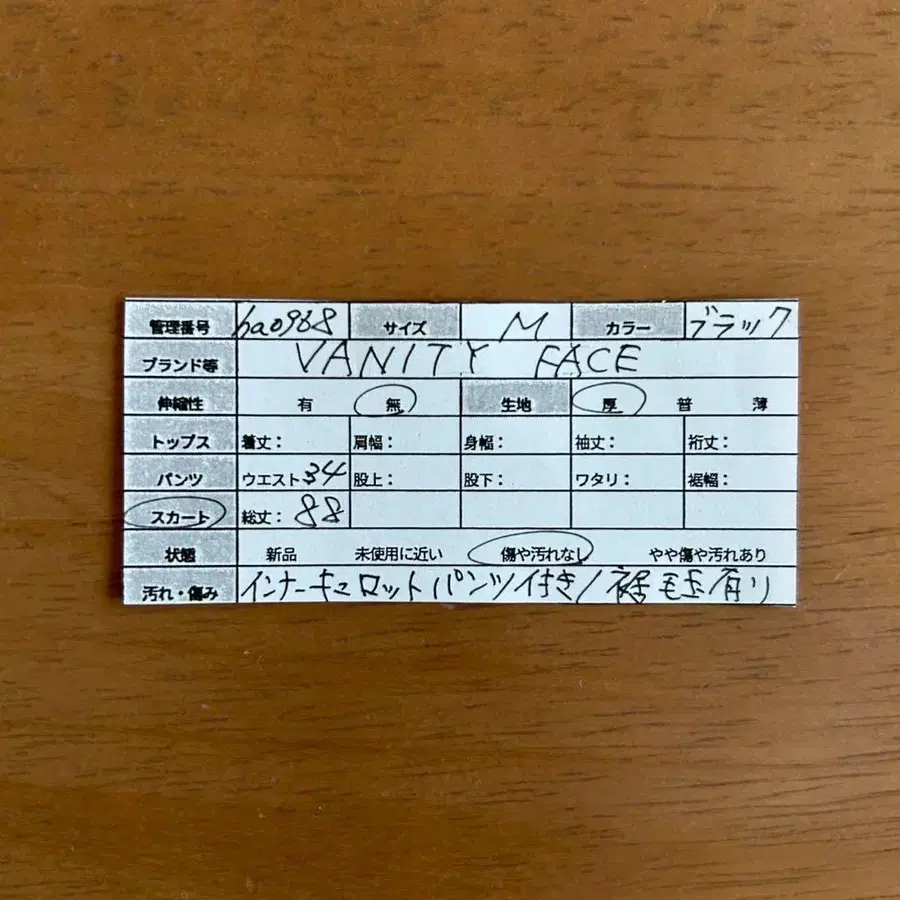 管理番号 ha0968 サイズ M カラー ブラック
ブランド等 VANITY FACE
伸縮性 有 無 生地 厚 普 薄
トップス 着丈: 肩幅: 身幅: 袖丈: 裄丈:
パンツ ウエスト34 股上: 股下: ワタリ: 裾幅:
スカート 総丈: 88
状態 新品 未使用に近い 傷や汚れなし やや傷や汚れあり
汚れ・傷み インナーキュロットパンツ付き/裾毛玉有り